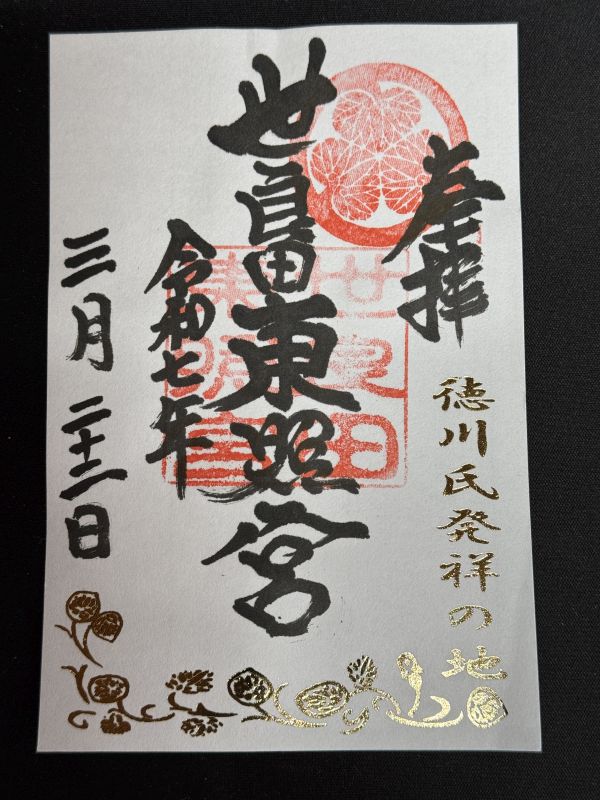 奉拝
徳川氏発祥の地
世良田東照宮
世良田
東照宮
令和七年
三月二十二日